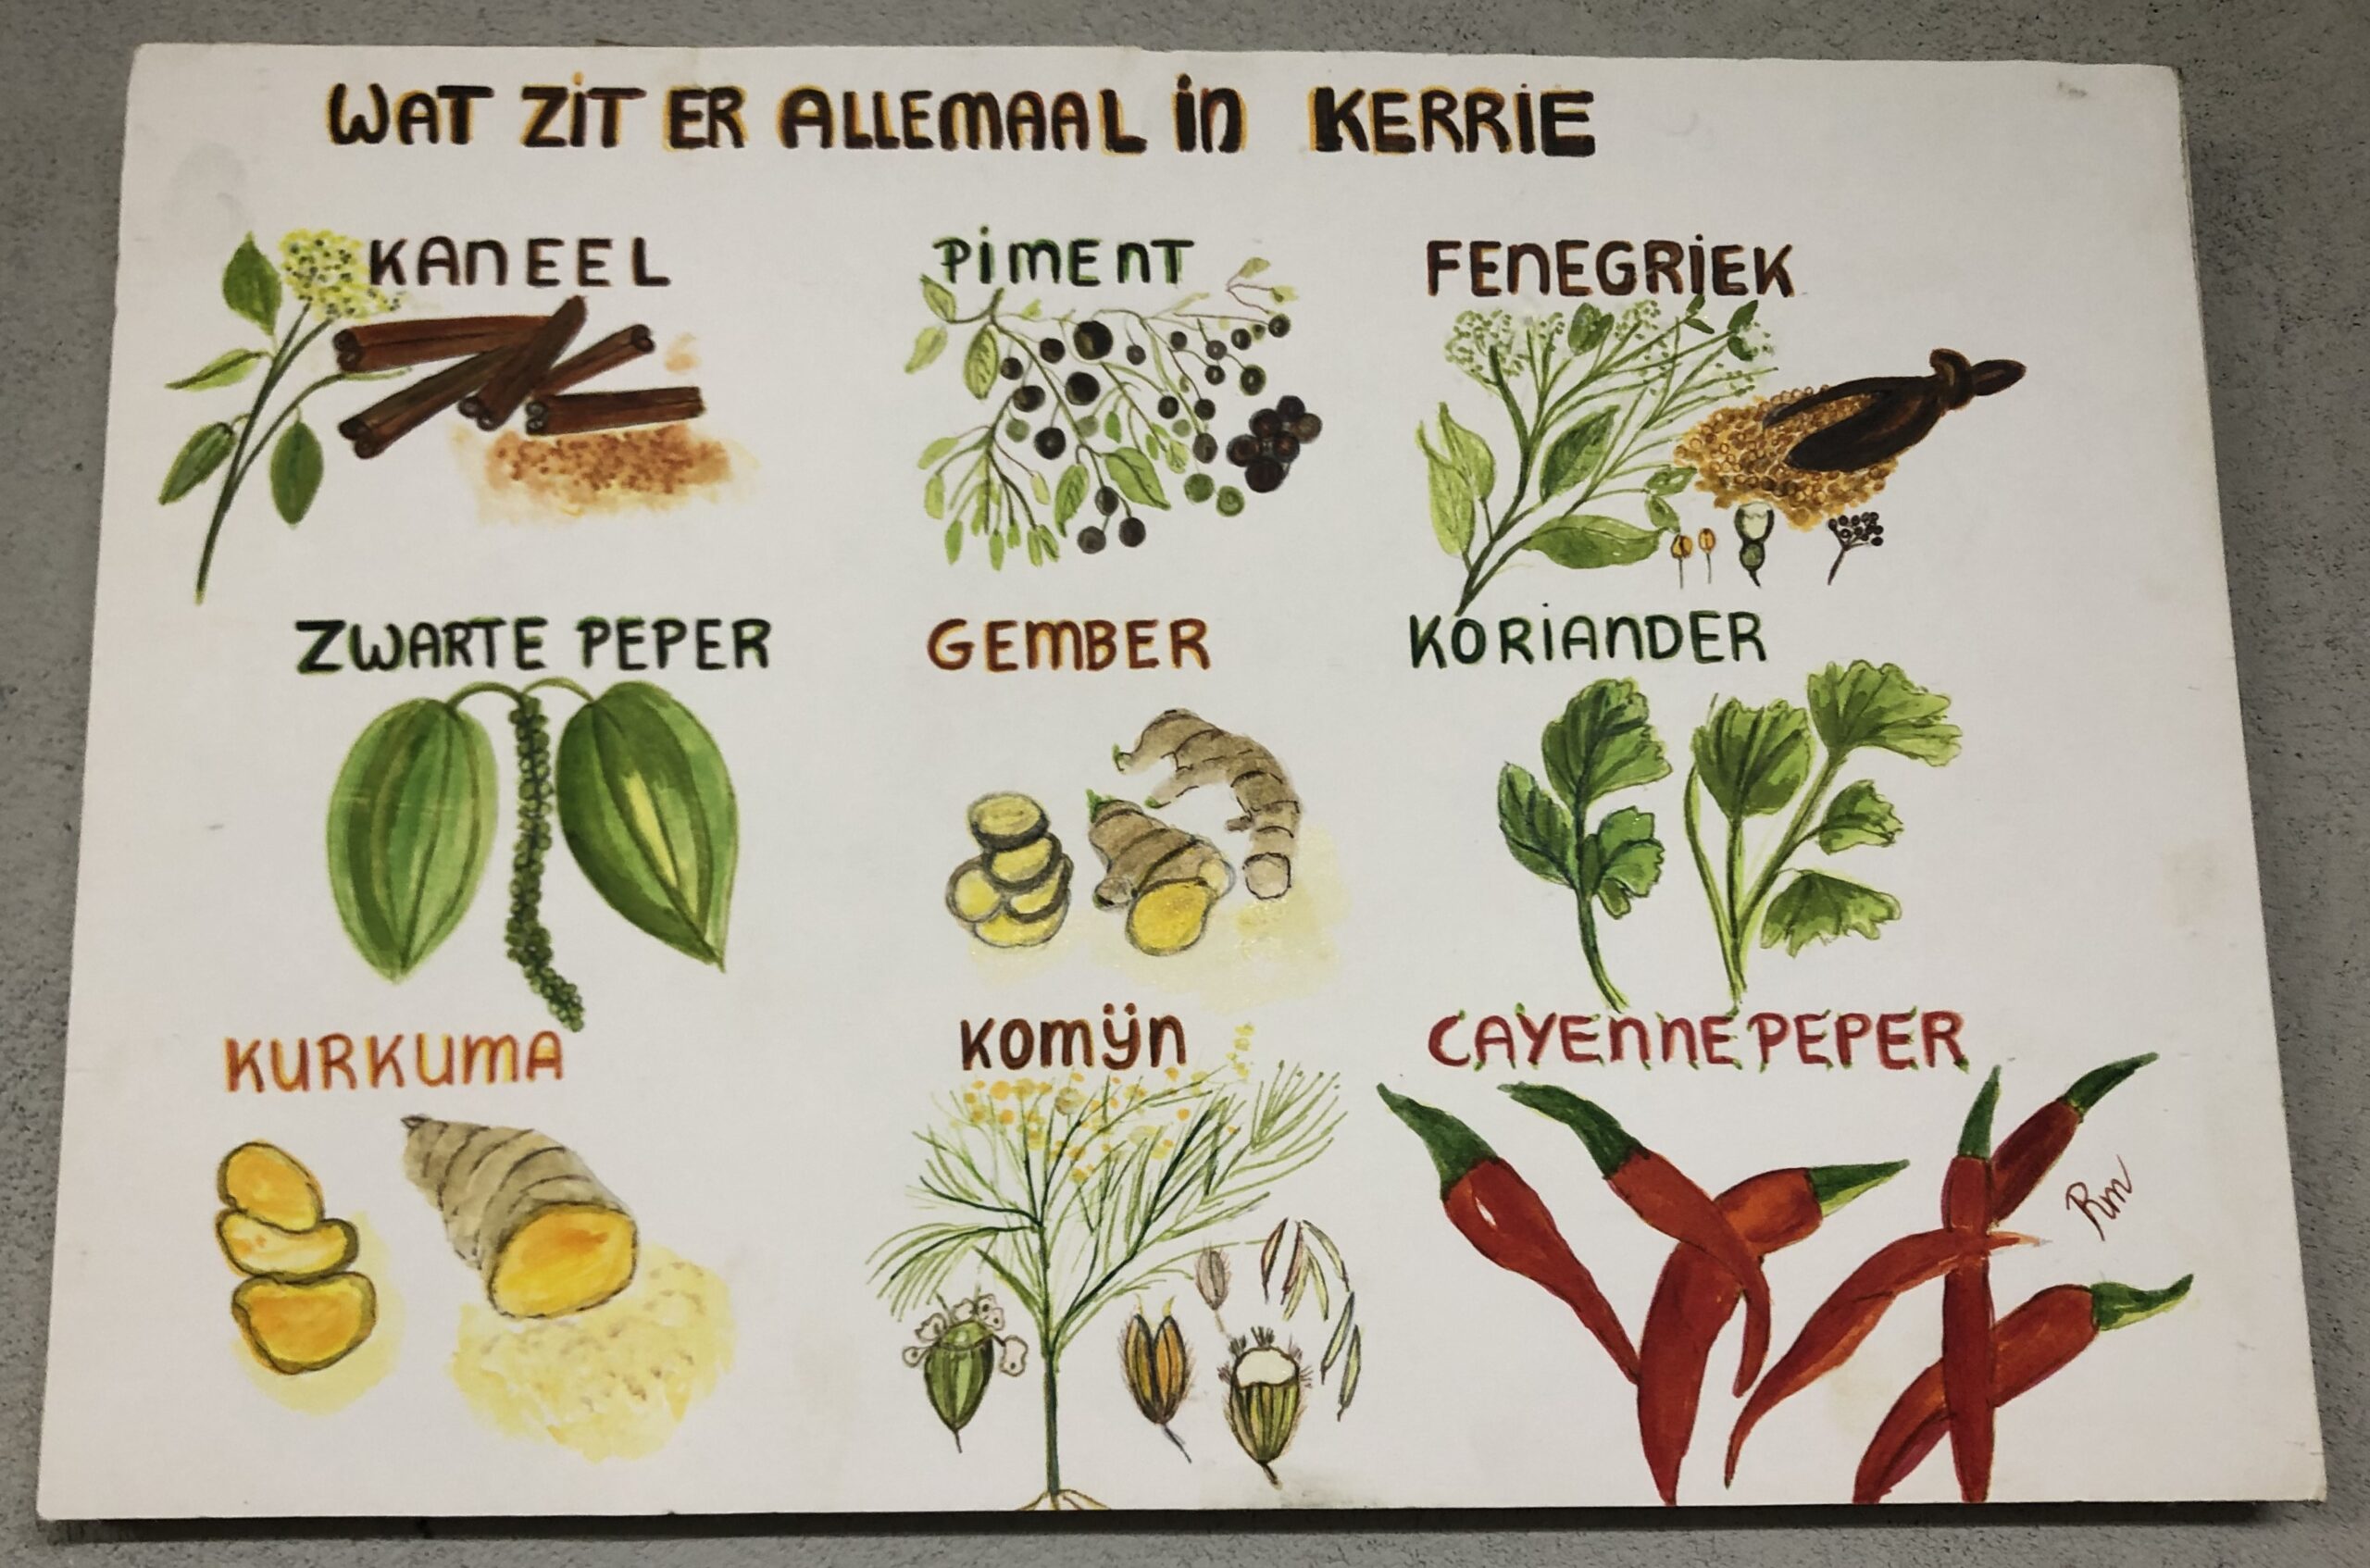 WAT ZIT ER ALLEMAAL in KERRIE
KANEEL
PIMENT
FENEGRIEK
ZWARTE PEPER
GEMBER
KORIANDER
KURKUMA
KOMŸN
CAYENNEPEPER
Rm